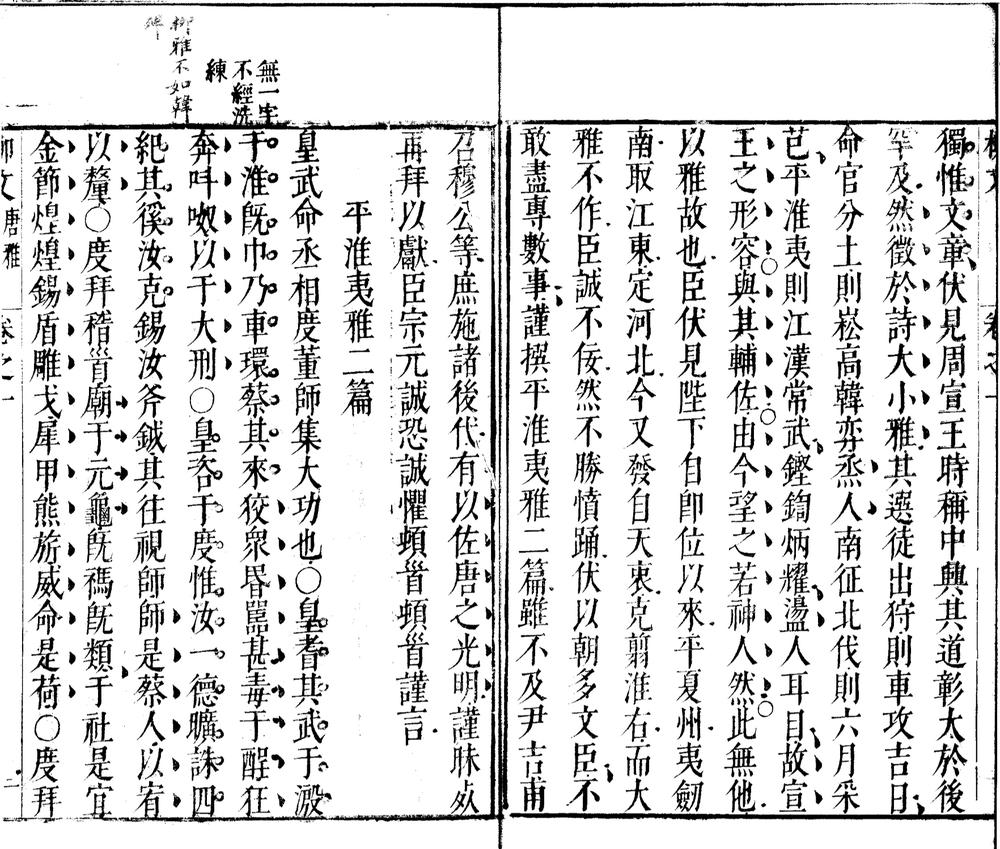 獨惟文章伏見周宣王時稱中興其道彰大於後
罕及然徵於詩大小雅其選徒出狩則車攻吉日
命官分土則崧高韓奕烝人南征北伐則六月采
芑平淮夷則江漢常武鏗鍧炳耀盪人耳目故宣
王之形容與其輔佐由今望之若神人然此無他
以雅故也臣伏見陛下自卽位以來平夏州夷劒
南取江東定河北今又發自天衷克翦淮右而大
雅不作臣誠不佞然不勝憤踊伏以朝多文臣不
敢盡專數事謹撰平淮夷雅二篇雖不及尹吉甫
召穆公等庶施諸後代有以佐唐之光明謹昧死
再拜以獻臣宗元誠恐誠懼頓首頓首謹言
平淮夷雅二篇
皇武命丞相度董師集大功也○皇耆其武于溵
于淮旣巾乃車環蔡其來狡衆昏嚚甚毒于酲狂
奔叫呶以干大刑○皇咨于度惟汝一德曠誅四
紀其徯汝克錫汝斧鉞其往視師師是蔡人以宥
以釐○度拜稽首廟于元龜旣禡旣類于社是宜
金節煌煌錫盾雕戈犀甲熊旂威命是荷○度拜
無一字
不經洗
練
柳雅不如韓
碑
柳文 唐雅 卷之一